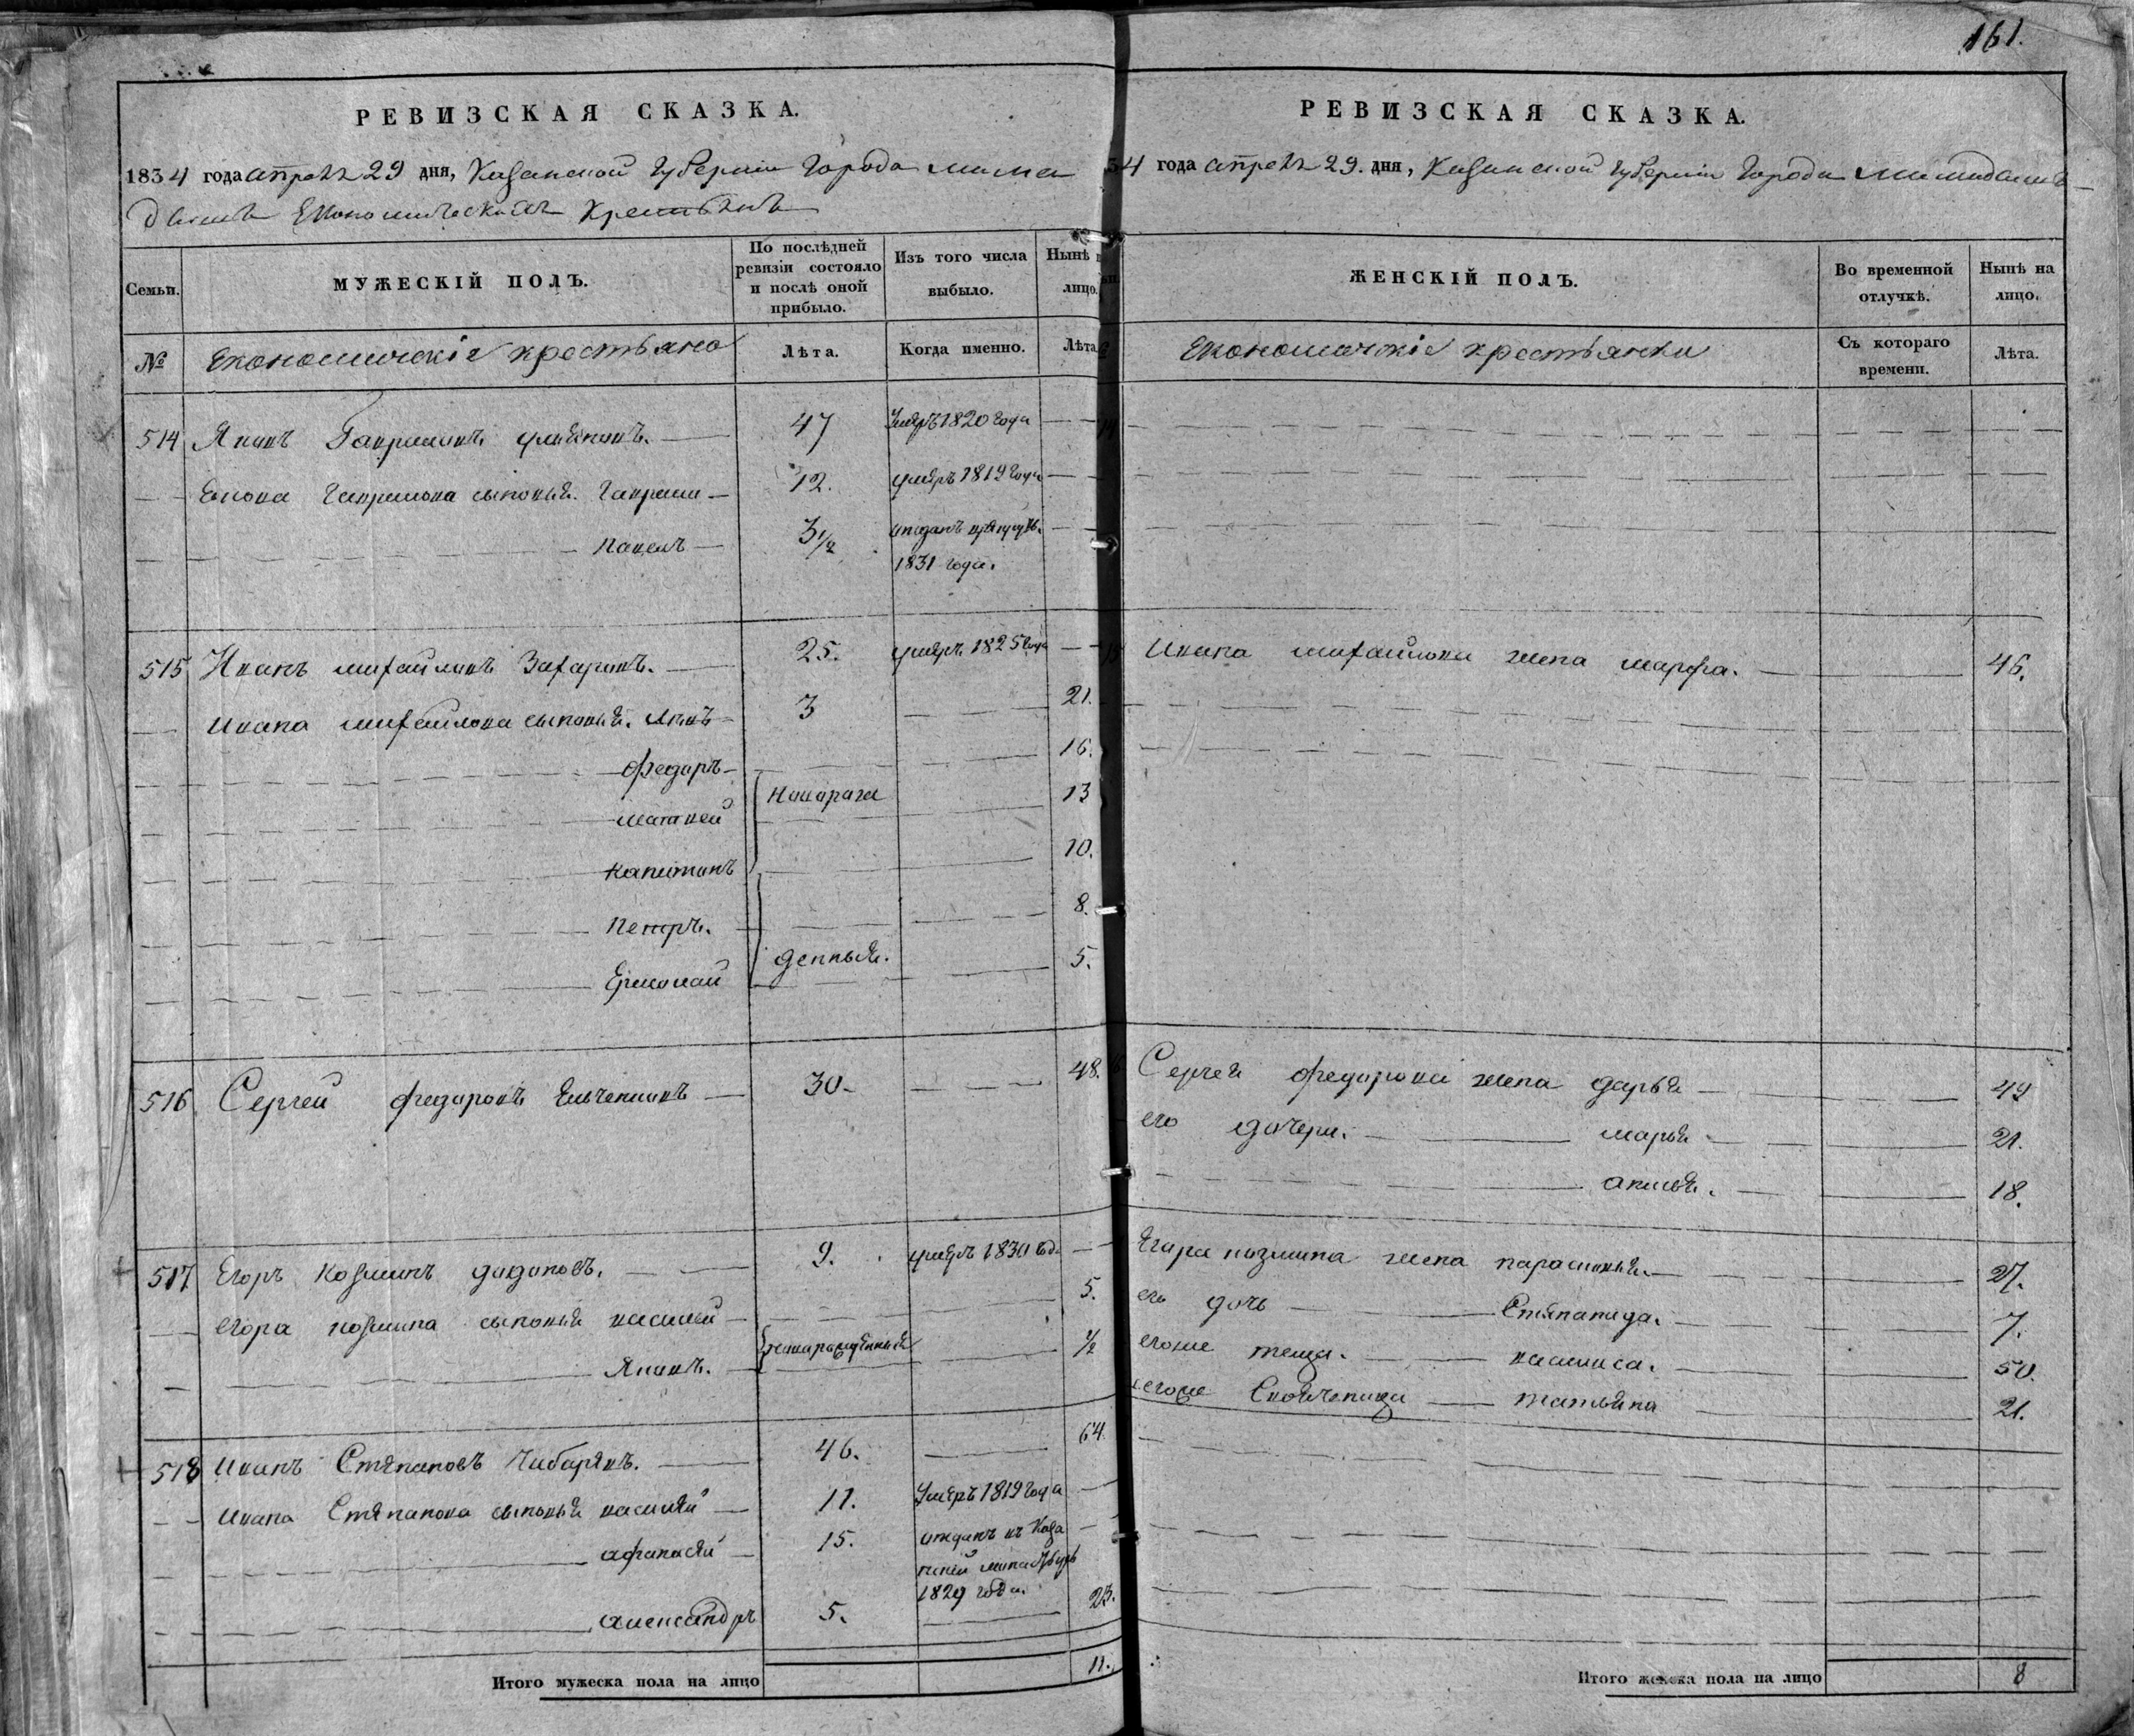 161.
РЕВИЗСКАЯ СКАЗКА.
1834 года апреля 29 дня, Казанской губерніи города мама
дыша Економическихъ крестьянъ
Семьи.
МУЖЕСКІЙ ПОЛЪ.
По послѣдней ревизіи состояло и послѣ оной прибыло.
Изъ того числа выбыло.
Нынѣ на лицо.
№
Економическіе крестьяне
Лѣта.
Когда именно.
Лѣта
514 Яковъ Гавриловъ 47 Умеръ 1820 года
Гаврилова сыновья. Гаврила 12. умеръ 1819 года
Павелъ 3½ отданъ
1831 года.
515 Иванъ михайловъ Захаровъ. 25. умеръ 1825 года
Ивана михайлова сыновья. 3 21.
Федоръ 16.
матвей новорож 13
капитонъ 10.
Петръ. 8.
Ермолай денныя. 5.
516 Сергей федоровъ 30 48.
517 Егоръ Козминъ 9. умеръ 1830 года
егора козмина сыновья василей 5.
Яковъ. новорожденныя ½
518 Иванъ Степановъ 46. 64.
Ивана Степанова сыновья василей 11. Умеръ 1819 года
афанасей 15. отданъ въ Каза
1829 года.
александръ 5. 23.
Итого мужеска пола на лицо 11.
РЕВИЗСКАЯ СКАЗКА.
34 года апреля 29. дня, Казанской губерніи города мамадыша
ЖЕНСКІЙ ПОЛЪ.
Во временной отлучкѣ.
Нынѣ на лицо.
Економическіе крестьянки
Съ котораго времени.
Лѣта.
Ивана михайлова жена марфа. 46.
Сергея федорова жена дарья 49
его дочери. марья 21.
18.
Егора козмина жена парасковья 27.
его дочь Степанида. 7.
егоже теща. василиса. 50.
егоже Своячиница татьяна 21.
Итого женска пола на лицо 8